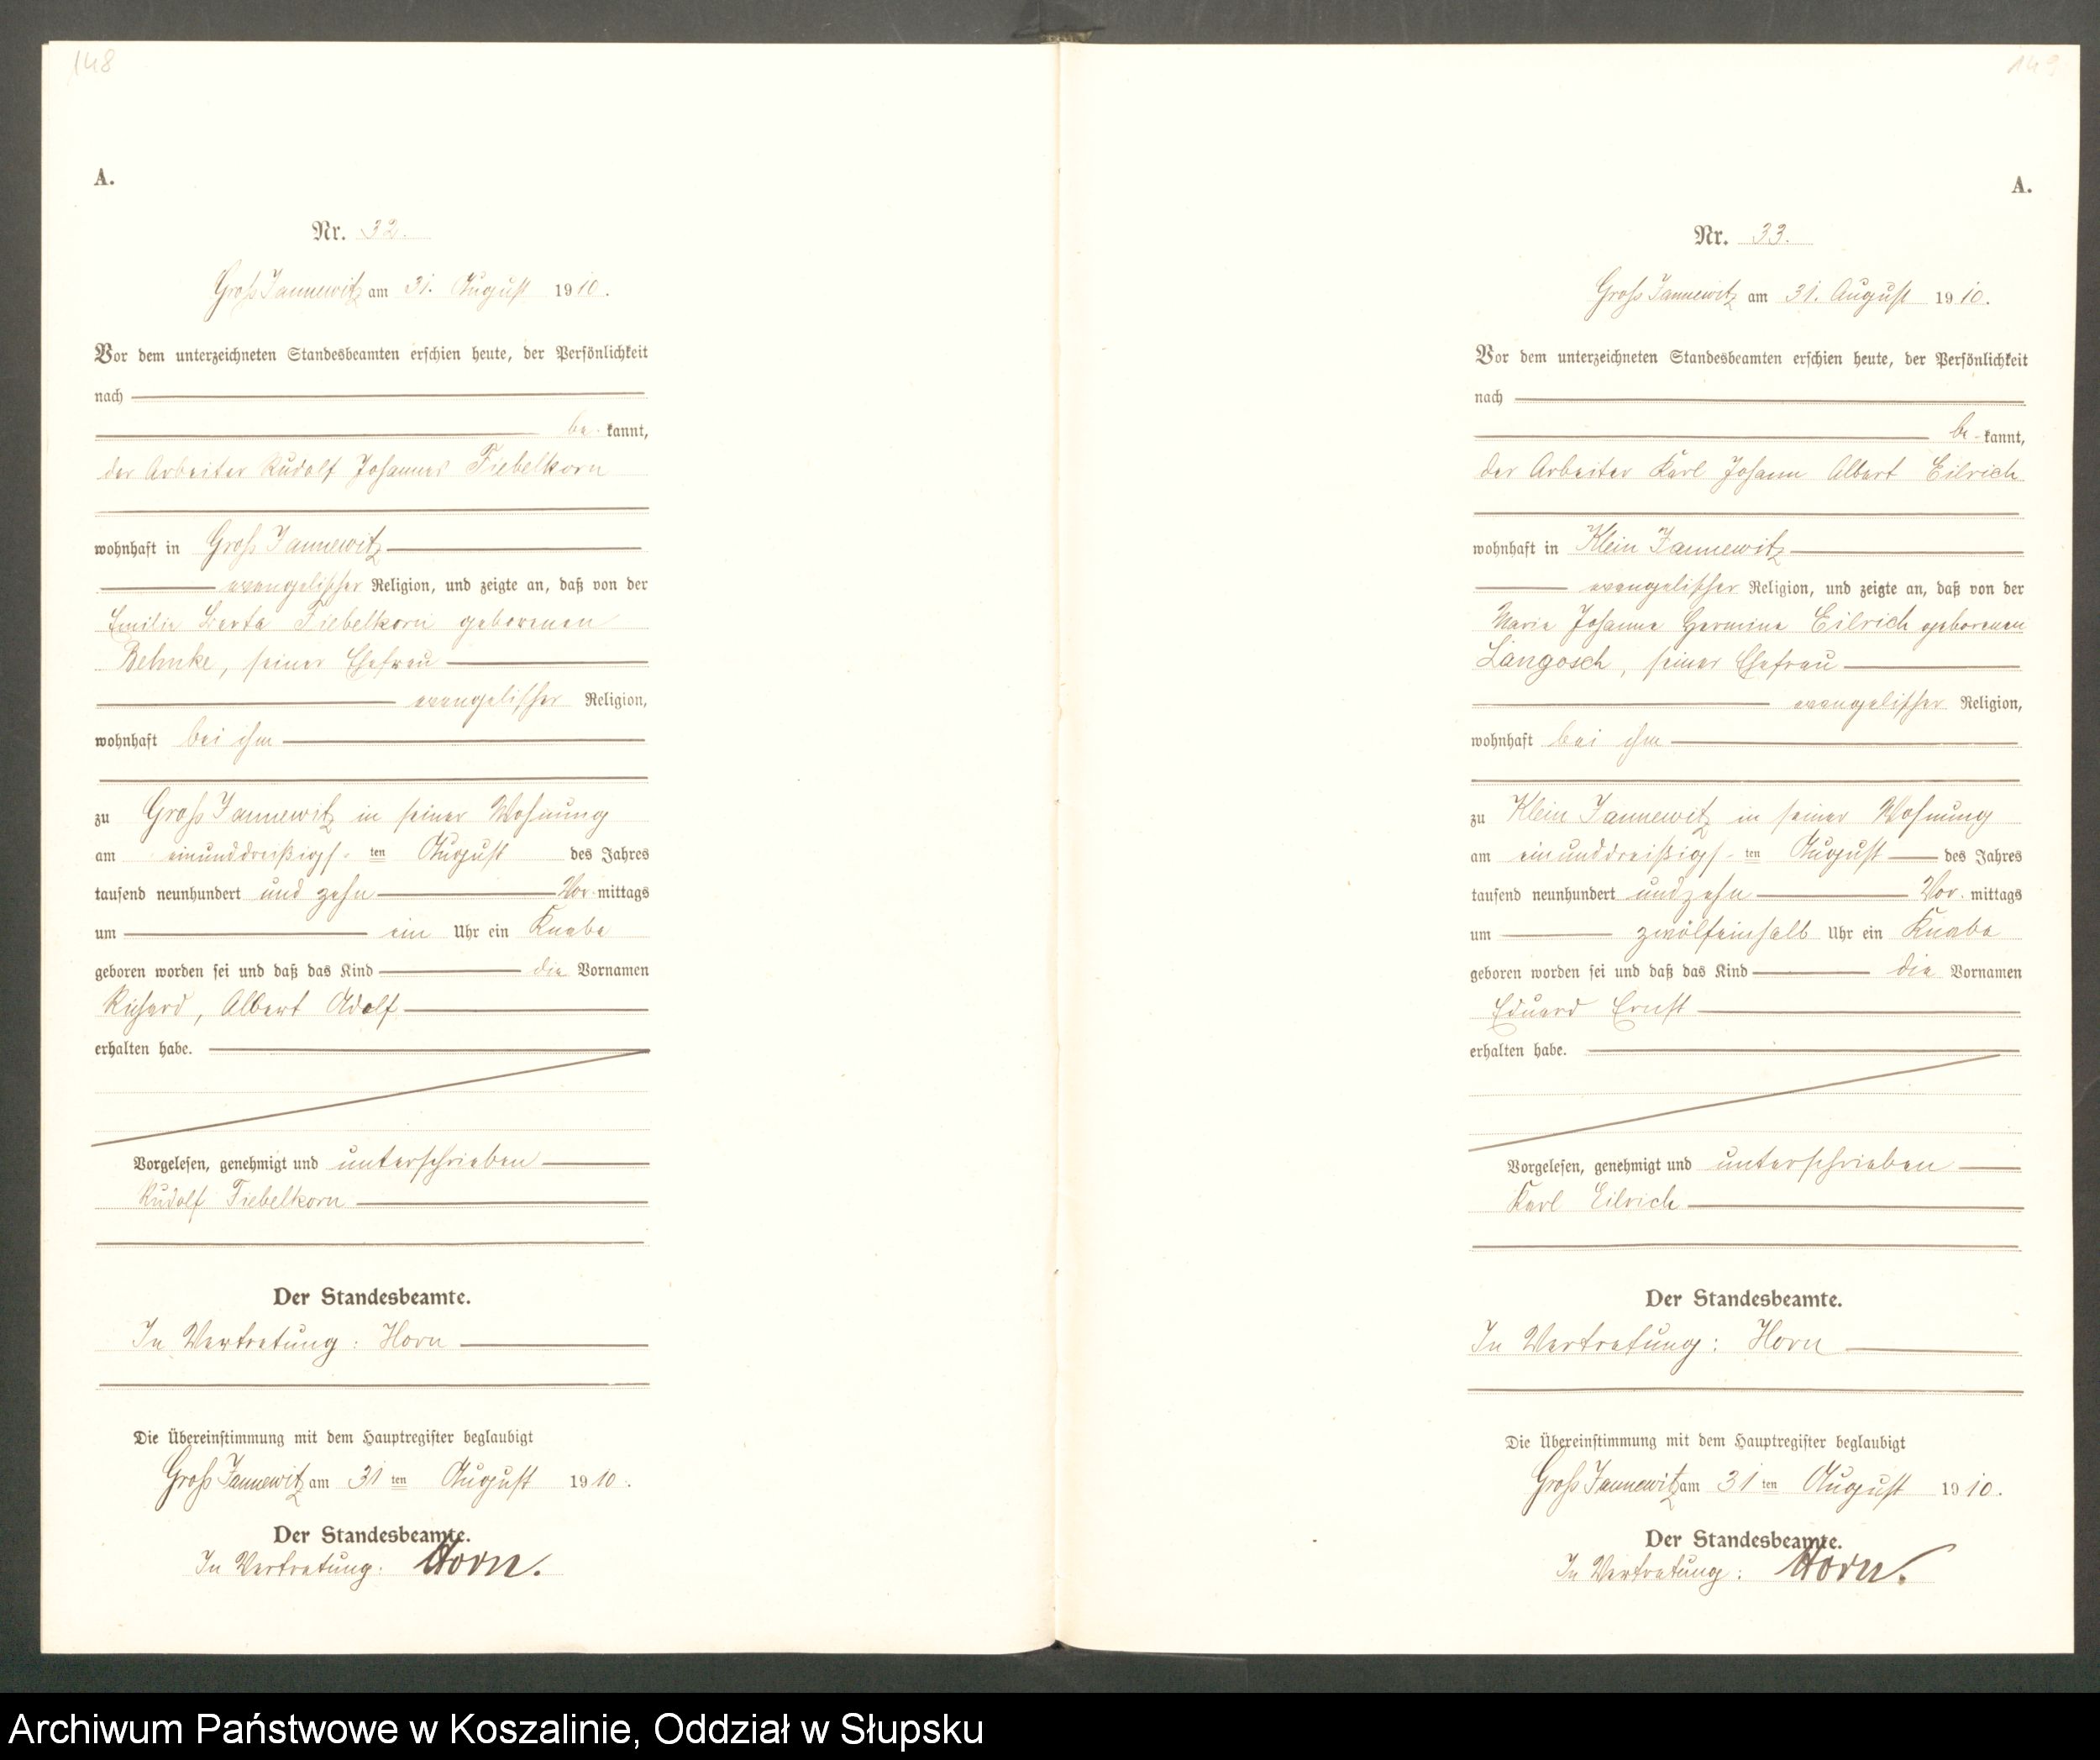 148
A.
Nr. 32.
Groß Jannewitz am 31. August 1910.
Vor dem unterzeichneten Standesbeamten erschien heute, der Persönlichkeit
nach
be-kannt,
der Arbeiter Rudolf Johannes Fiebelkorn
wohnhaft in Groß Jannewitz
evangelischer Religion, und zeigte an, daß von der
Emilie Berta Fiebelkorn geborenen
Behnke, seiner Ehefrau
evangelischer Religion,
wohnhaft bei ihm
zu Groß Jannewitz in seiner Wohnung
am einunddreißigs-ten August des Jahres
tausend neunhundert und zehn Vor-mittags
um ein Uhr ein Knabe
geboren worden sei und daß das Kind die Vornamen
Richard, Albert Adolf
erhalten habe.
Vorgelesen, genehmigt und unterschrieben
Rudolf Fiebelkorn
Der Standesbeamte.
In Vertretung: Horn
Die Übereinstimmung mit dem Hauptregister beglaubigt
Groß Jannewitz am 31ten August 1910.
Der Standesbeamte.
In Vertretung: Horn.
149
A.
Nr. 33.
Groß Jannewitz am 31. August 1910.
Vor dem unterzeichneten Standesbeamten erschien heute, der Persönlichkeit
nach
be-kannt,
der Arbeiter Karl Johann Albert Eilrich
wohnhaft in Klein Jannewitz
evangelischer Religion, und zeigte an, daß von der
Marie Johanne Hermine Eilrich geborenen
Langosch, seiner Ehefrau
evangelischer Religion,
wohnhaft bei ihm
zu Klein Jannewitz in seiner Wohnung
am einunddreißigs-ten August des Jahres
tausend neunhundert undzehn Vor-mittags
um zwölfeinhalb Uhr ein Knabe
geboren worden sei und daß das Kind die Vornamen
Eduard Ernst
erhalten habe.
Vorgelesen, genehmigt und unterschrieben
Karl Eilrich
Der Standesbeamte.
In Vertretung: Horn
Die Übereinstimmung mit dem Hauptregister beglaubigt
Groß Jannewitz am 31ten August 1910.
Der Standesbeamte.
In Vertretung: Horn.
Archiwum Państwowe w Koszalinie, Oddział w Słupsku